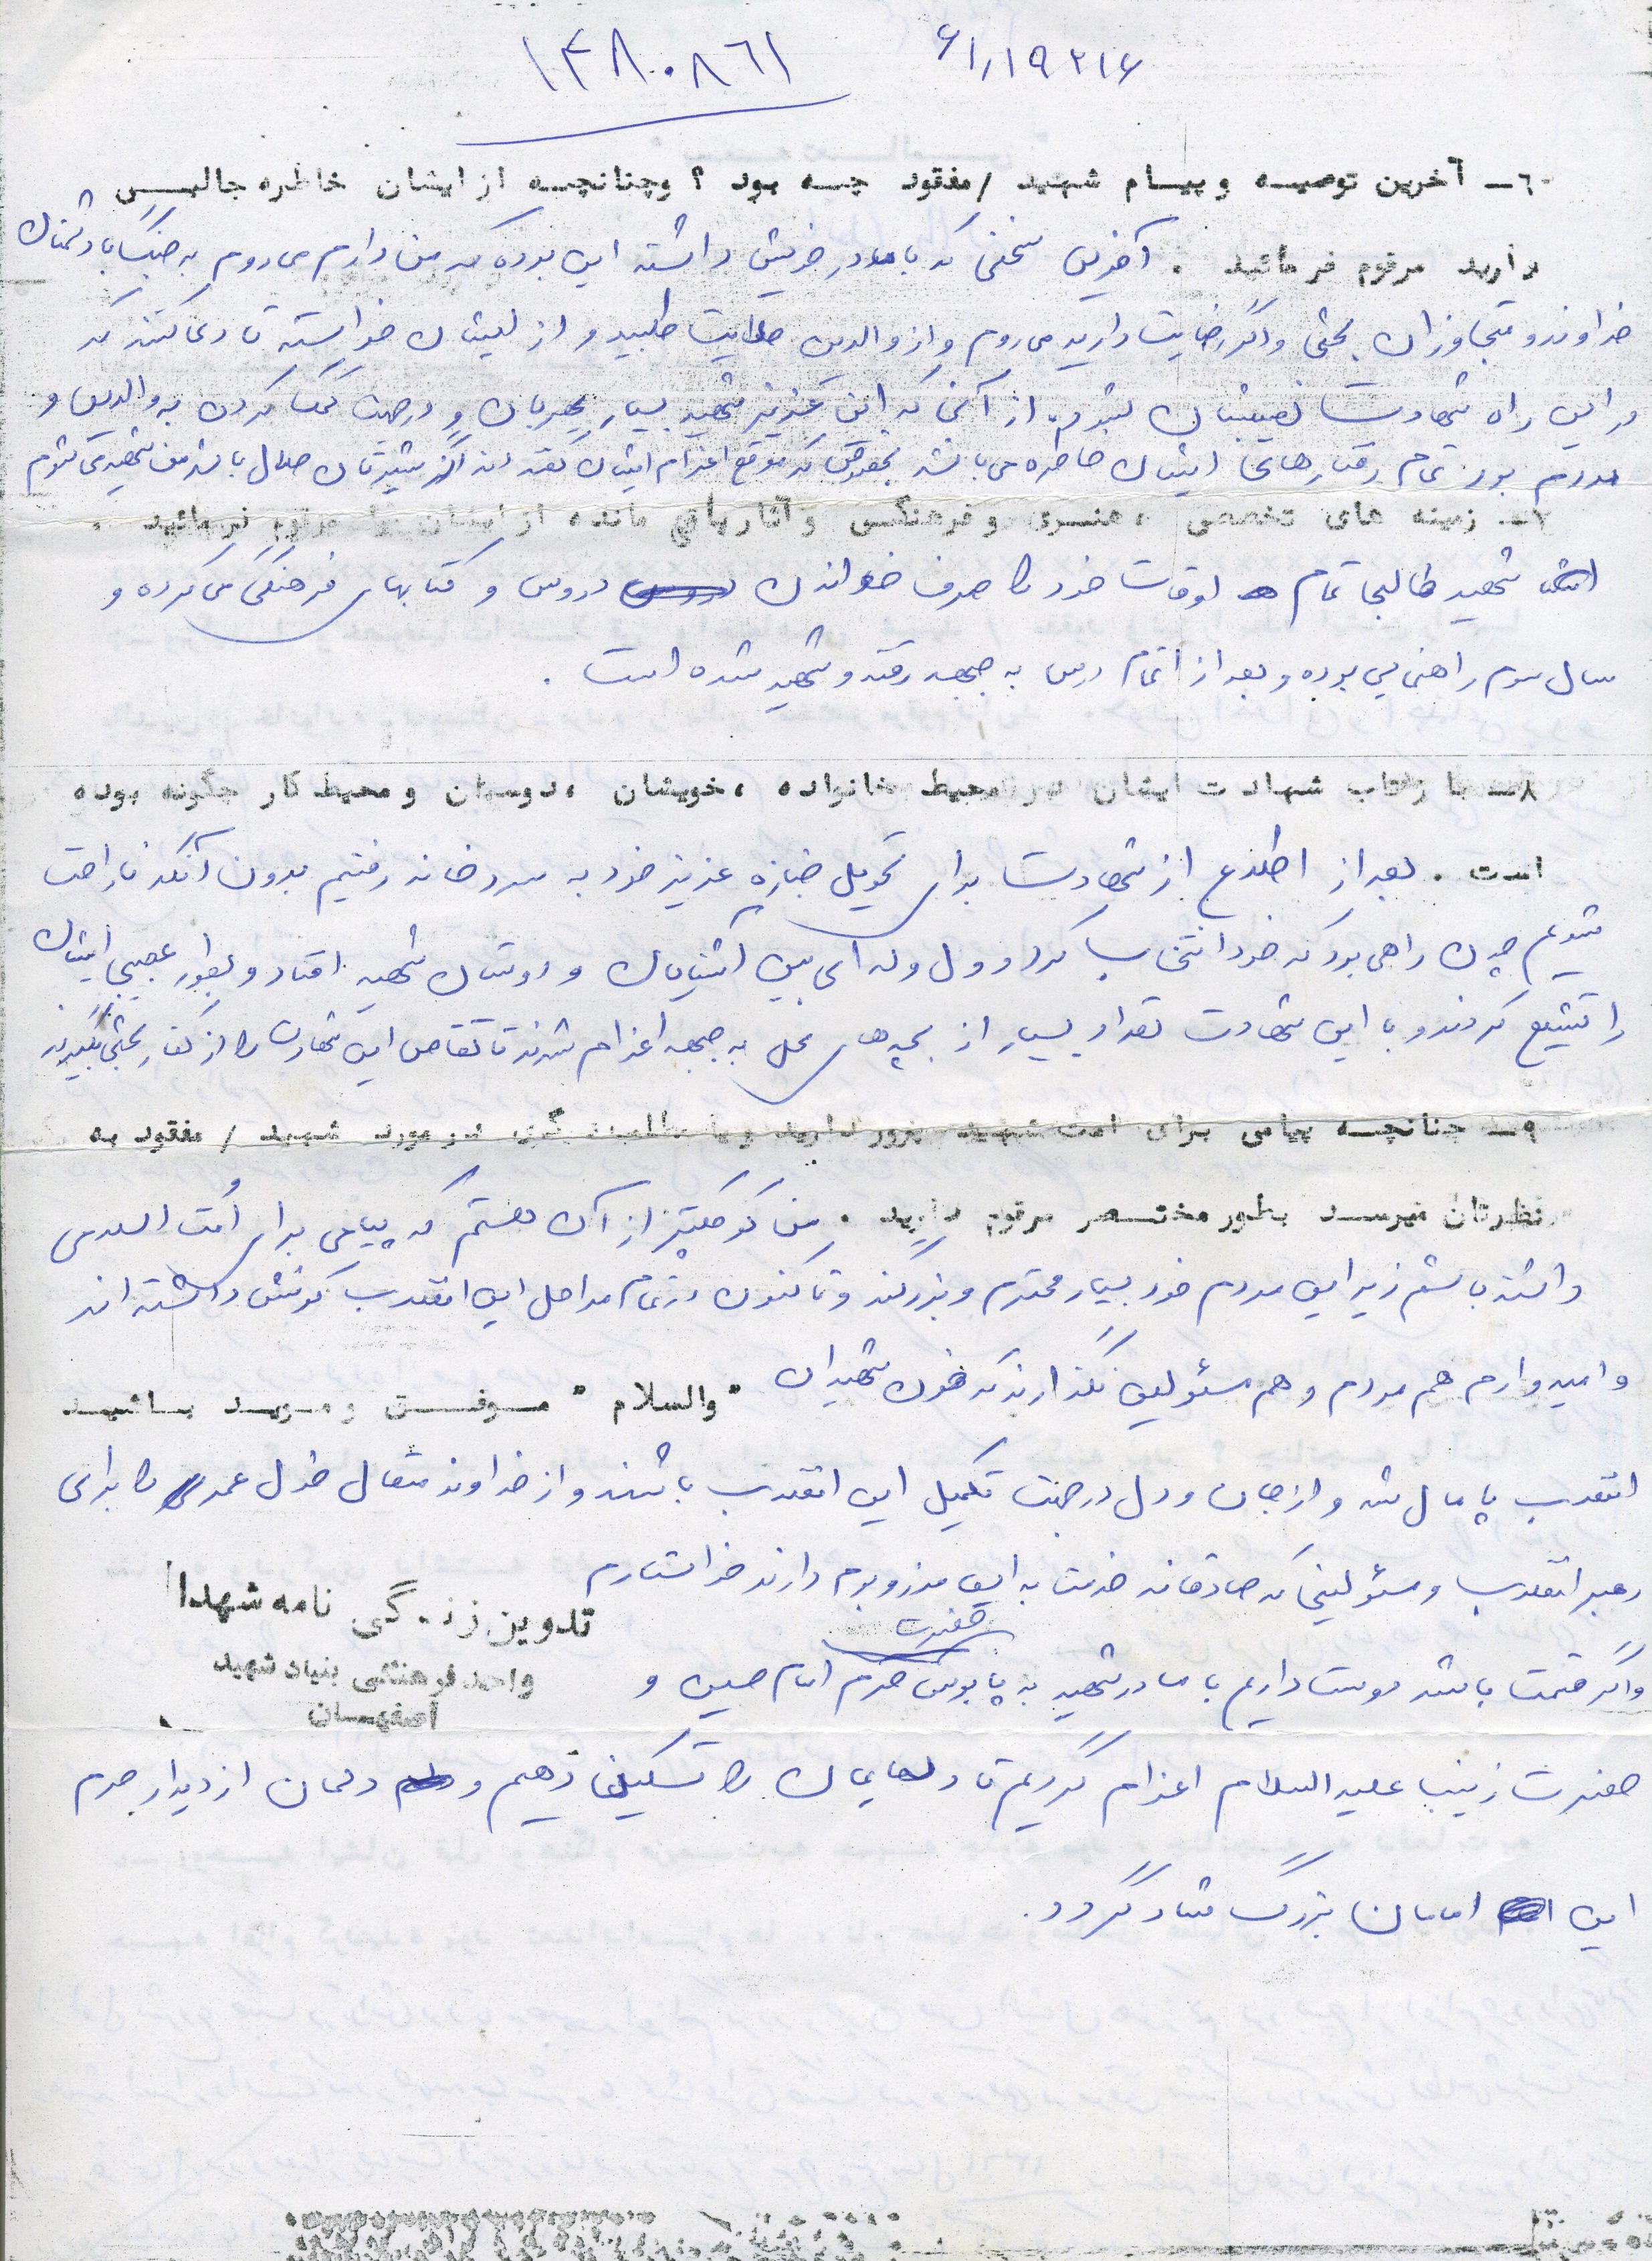 ۶۱٫۱۹۳۱۶ ۱۴۸۰۰۸۶۱
۶ــ آخرین توصیه و پیام شهید / مفقود چه بود ؟ وچنانچه از ایشان خاطره جالبی
دارید مرقوم فرمائید . آخرین سخنی که با مادر خویش داشته این بوده که من دارم می روم به جنگ با دشمنان
خداوند و متجاوزان بعثی و اگر رضایت دارید می روم و از والدین حلالیت طلبید و از ایشان خواسته تا دعا کنند که
در این راه شهادت نصیبشان بشود. از آنجا که این عزیز شهید بسیار مهربان و در جهت کمک کردن به والدین و
مردم بود تمام رفتارهای ایشان خاطره می باشد بخصوص که موقع اعزام ایشان گفته اند اگر شیرتان حلال باشد من شهید می شوم
۷ــ زمینه های تخصصی ، هنری و فرهنگی و آثار باقی مانده از ایشان را مرقوم فرمائید .
شهید طالبجا تمام اوقات خود را صرف خواندن دروس و کتابهای فرهنگی می کرده و
سال سوم راهنمایی بوده و بعد از اتمام درس به جبهه رفته و شهید شده است .
۸ــ بازتاب شهادت ایشان در محیط خانواده ، خویشان ، دوستان و محیط کار چگونه بوده
است . بعد از اطلاع از شهادت برای تحویل جنازه عزیز خود به سردخانه رفتیم بدون آنکه ناراحت
شویم چون راهی بود که خود انتخاب کرد و ول وله ای بین آشنایان و دوستان شهید افتاد و بطور عجیبی ایشان
را تشییع کردند و با این شهادت تعداد بسیار از بچه های محل به جبهه اعزام شدند تا تقاص این شهادت را از کفار بعثی بگیرند
۹ــ چنانچه پیامی برای امت شهید پرور دارید و یا مطلب دیگری در مورد شهید / مفقود به
نظرتان میرسد بطور مختصر مرقوم دارید . من کوچکتر از آن هستم که پیامی برای اُمت اسلامی
داشته باشم زیرا این مردم خود بسیار محترم و بزرگند و تاکنون در تمام مراحل این انقلاب کوشش داشته اند
و امیدوارم هم مردم و هم مسئولین نگذارند که خون شهیدان
" والسلام " موفق و موید باشید
انقلاب پامال شد و از جان و دل در جهت تکمیل این انقلاب باشند و از خداوند متعال طول عمر را برای
رهبر انقلاب و مسئولینی که صادقانه خدمت به این مرز و بوم دارند خواستارم
تدوین زندگی نامه شهدا
واحد فرهنگی بنیاد شهید
اصفهان
و اگر قسمت باشد دوست داریم با مادر شهید به پابوس حرم حضرت امام حسین و
حضرت زینب علیه السلام اعزام گردیم تا دلهایمان را تسکین دهیم و دلمان از دیدار حرم
این امامان بزرگ شاد گردد .